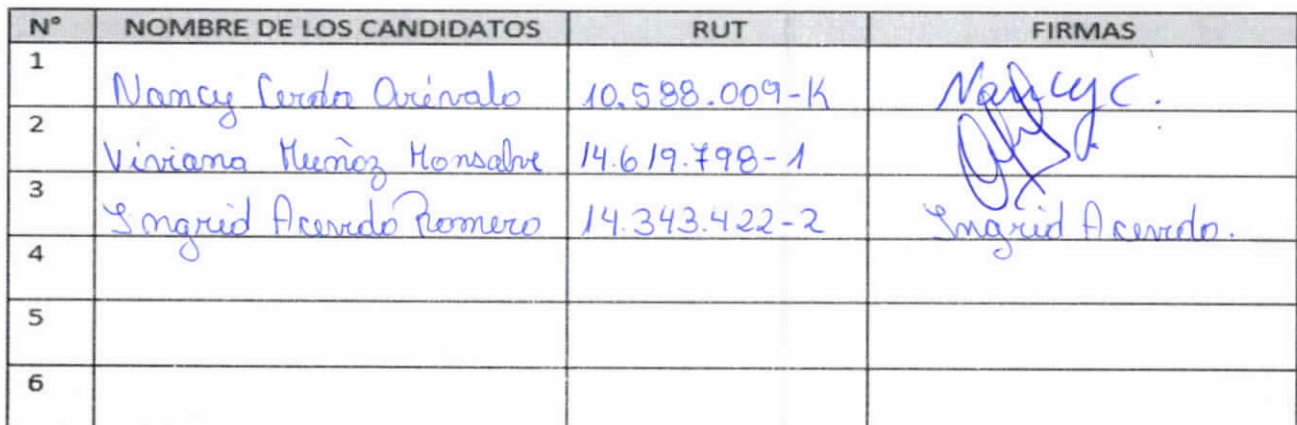 N° NOMBRE DE LOS CANDIDATOS RUT FIRMAS
1 Nancy Cerda Arévalo 10.588.009-K Nancy C.
2 Viviana Muñoz Monsalve 14.619.798-1
3 Ingrid Acevedo Romero 14.343.422-2 Ingrid Acevedo.
4
5
6